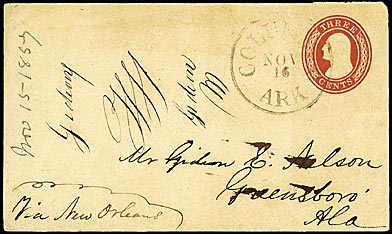 THREE
CENTS
NOV
16
ARK
Nov 15-1857
Gideon
Mr Gideon E. Nelson
Greensboro'
Ala
Via New Orleans